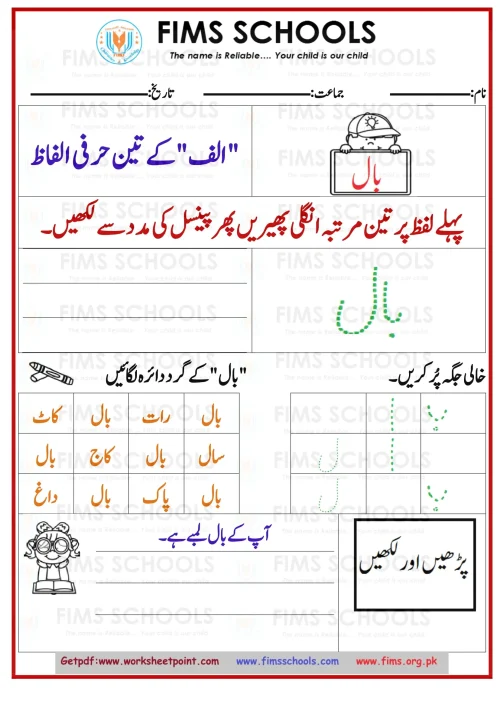 FIMS SCHOOLS
The name is Reliable.... Your child is our child
نام: جماعت: تاریخ:
"الف" کے تین حرفی الفاظ
بال
پہلے لفظ پر تین مرتبہ انگلی پھیریں پھر پینسل کی مدد سے لکھیں۔
بال
خالی جگہ پُر کریں۔
"بال" کے گرد دائرہ لگائیں
بال رات بال کاٹ
سال بال کاج بال
بال پاک بال داغ
بـ ا
ا ل
بـ ل
پڑھیں اور لکھیں
آپ کے بال لمبے ہے۔
Getpdf:www.worksheetpoint.com www.fimsschools.com www.fims.org.pk